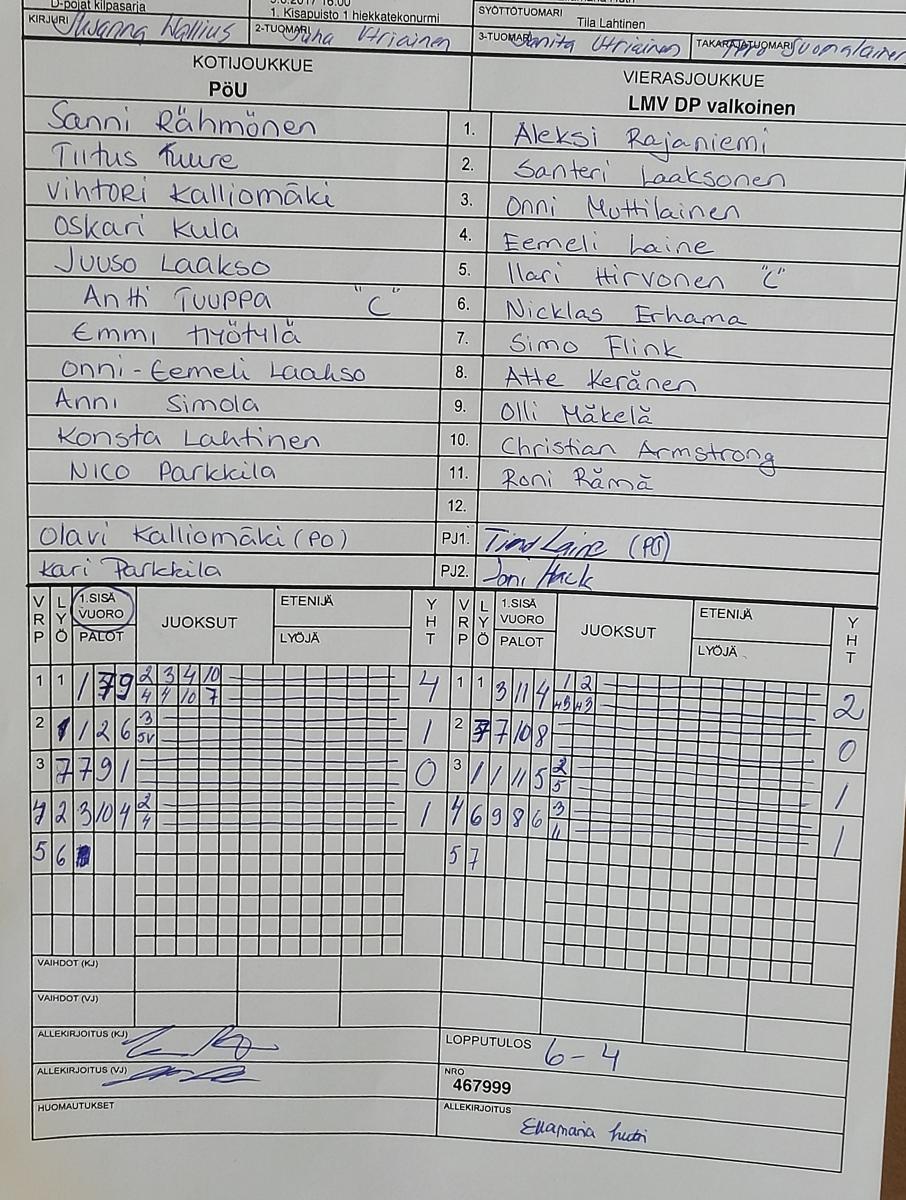 D-pojat kilpasarja
1. Kisapuisto 1 hiekkatekonurmi
SYÖTTÖTUOMARI Tiia Lahtinen
KIRJURI Susanna Wallius 2-TUOMARI Juha Utriainen 3-TUOMARI Sanita Utriainen TAKARAJATUOMARI Suomalainen
KOTIJOUKKUE VIERASJOUKKUE
PöU LMV DP valkoinen
Sanni Rähmönen 1. Aleksi Rajaniemi
Tiitus Tuure 2. Santeri Laaksonen
Vihtori Kalliomäki 3. Onni Muttilainen
Oskari Kula 4. Eemeli Laine
Juuso Laakso 5. Ilari Hirvonen "C"
Antti Tuuppa "C" 6. Nicklas Erhama
Emmi Hyötylä 7. Simo Flink
Onni-Eemeli Laakso 8. Atte Keränen
Anni Simola 9. Olli Mäkelä
Konsta Lahtinen 10. Christian Armstrong
Nico Parkkila 11. Roni Rämä
12.
Olavi Kalliomäki (PO) PJ1. Timo Laine (PO)
Kari Parkkila PJ2. Joni Hack
VRP LYÖ 1.SISÄ VUORO PALOT JUOKSUT ETENIJÄ LYÖJÄ YHT VRP LYÖ 1.SISÄ VUORO PALOT JUOKSUT ETENIJÄ LYÖJÄ YHT
1 1 1 7 9 2 3 4 10 4 1 1 3 11 4 1 2 2
4 4 10 7 +3 +3
2 1 1 2 6 3 1 2 7 7 10 8 0
5v
3 7 7 9 1 0 3 1 1 11 5 2 1
5
4 2 3 10 4 2 1 4 6 9 8 6 3 1
4 11
5 6 5 7
VAIHDOT (KJ)
VAIHDOT (VJ)
ALLEKIRJOITUS (KJ) LOPPUTULOS 6-4
ALLEKIRJOITUS (VJ) NRO
467999
HUOMAUTUKSET ALLEKIRJOITUS
Ellamaria